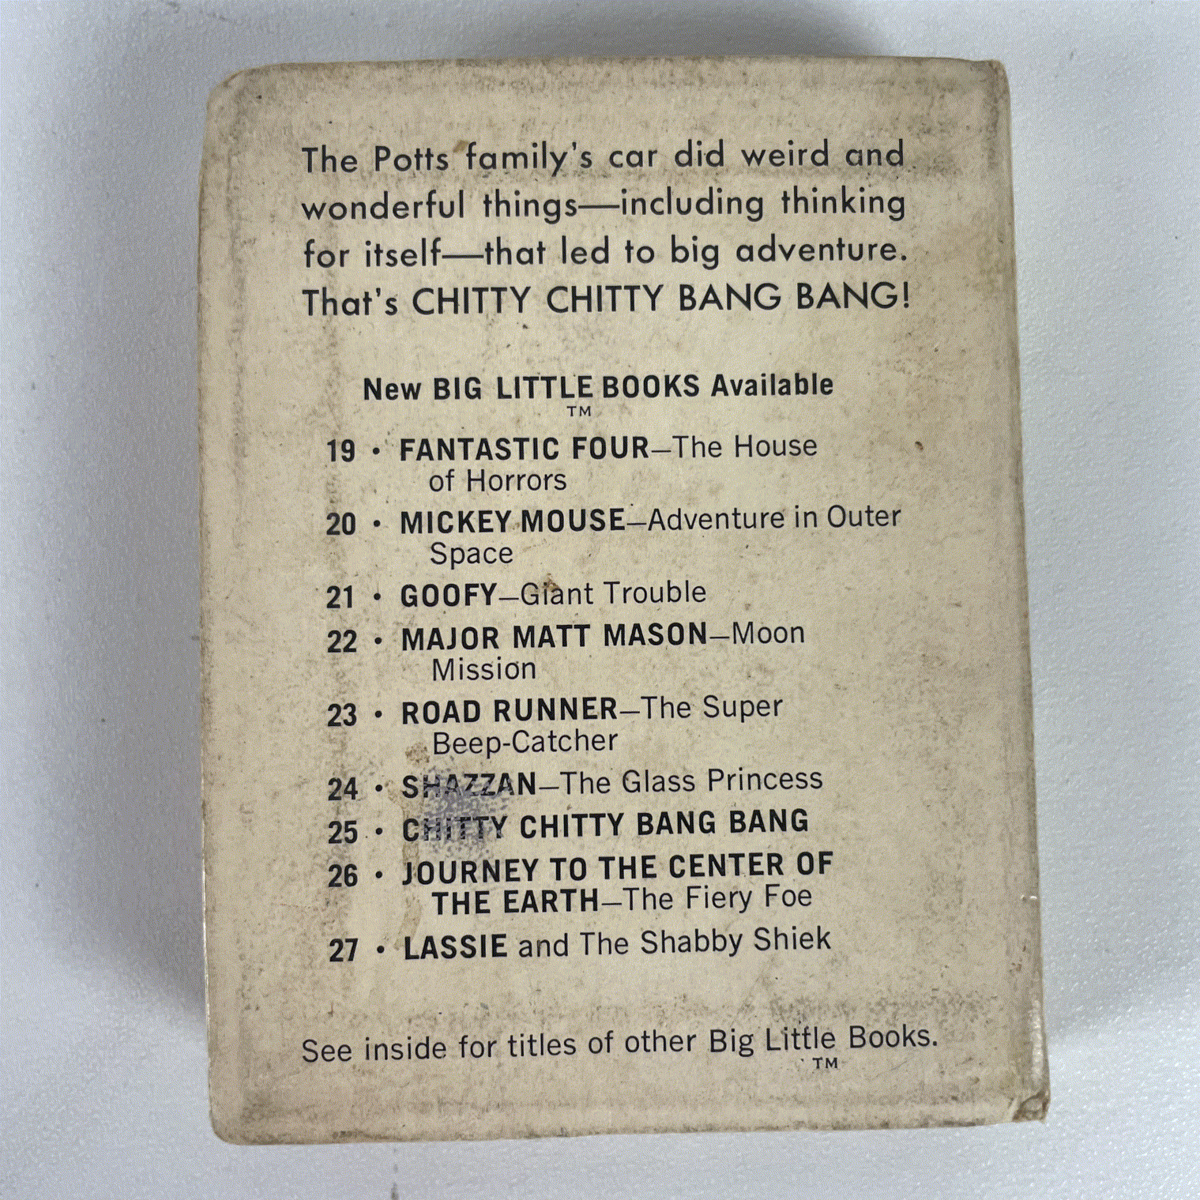 The Potts family's car did weird and
wonderful things—including thinking
for itself—that led to big adventure.
That's CHITTY CHITTY BANG BANG!
New BIG LITTLE BOOKS Available
TM
19 • FANTASTIC FOUR—The House
of Horrors
20 • MICKEY MOUSE—Adventure in Outer
Space
21 • GOOFY—Giant Trouble
22 • MAJOR MATT MASON—Moon
Mission
23 • ROAD RUNNER—The Super
Beep-Catcher
24 • SHAZZAN—The Glass Princess
25 • CHITTY CHITTY BANG BANG
26 • JOURNEY TO THE CENTER OF
THE EARTH—The Fiery Foe
27 • LASSIE and The Shabby Shiek
See inside for titles of other Big Little Books.
TM